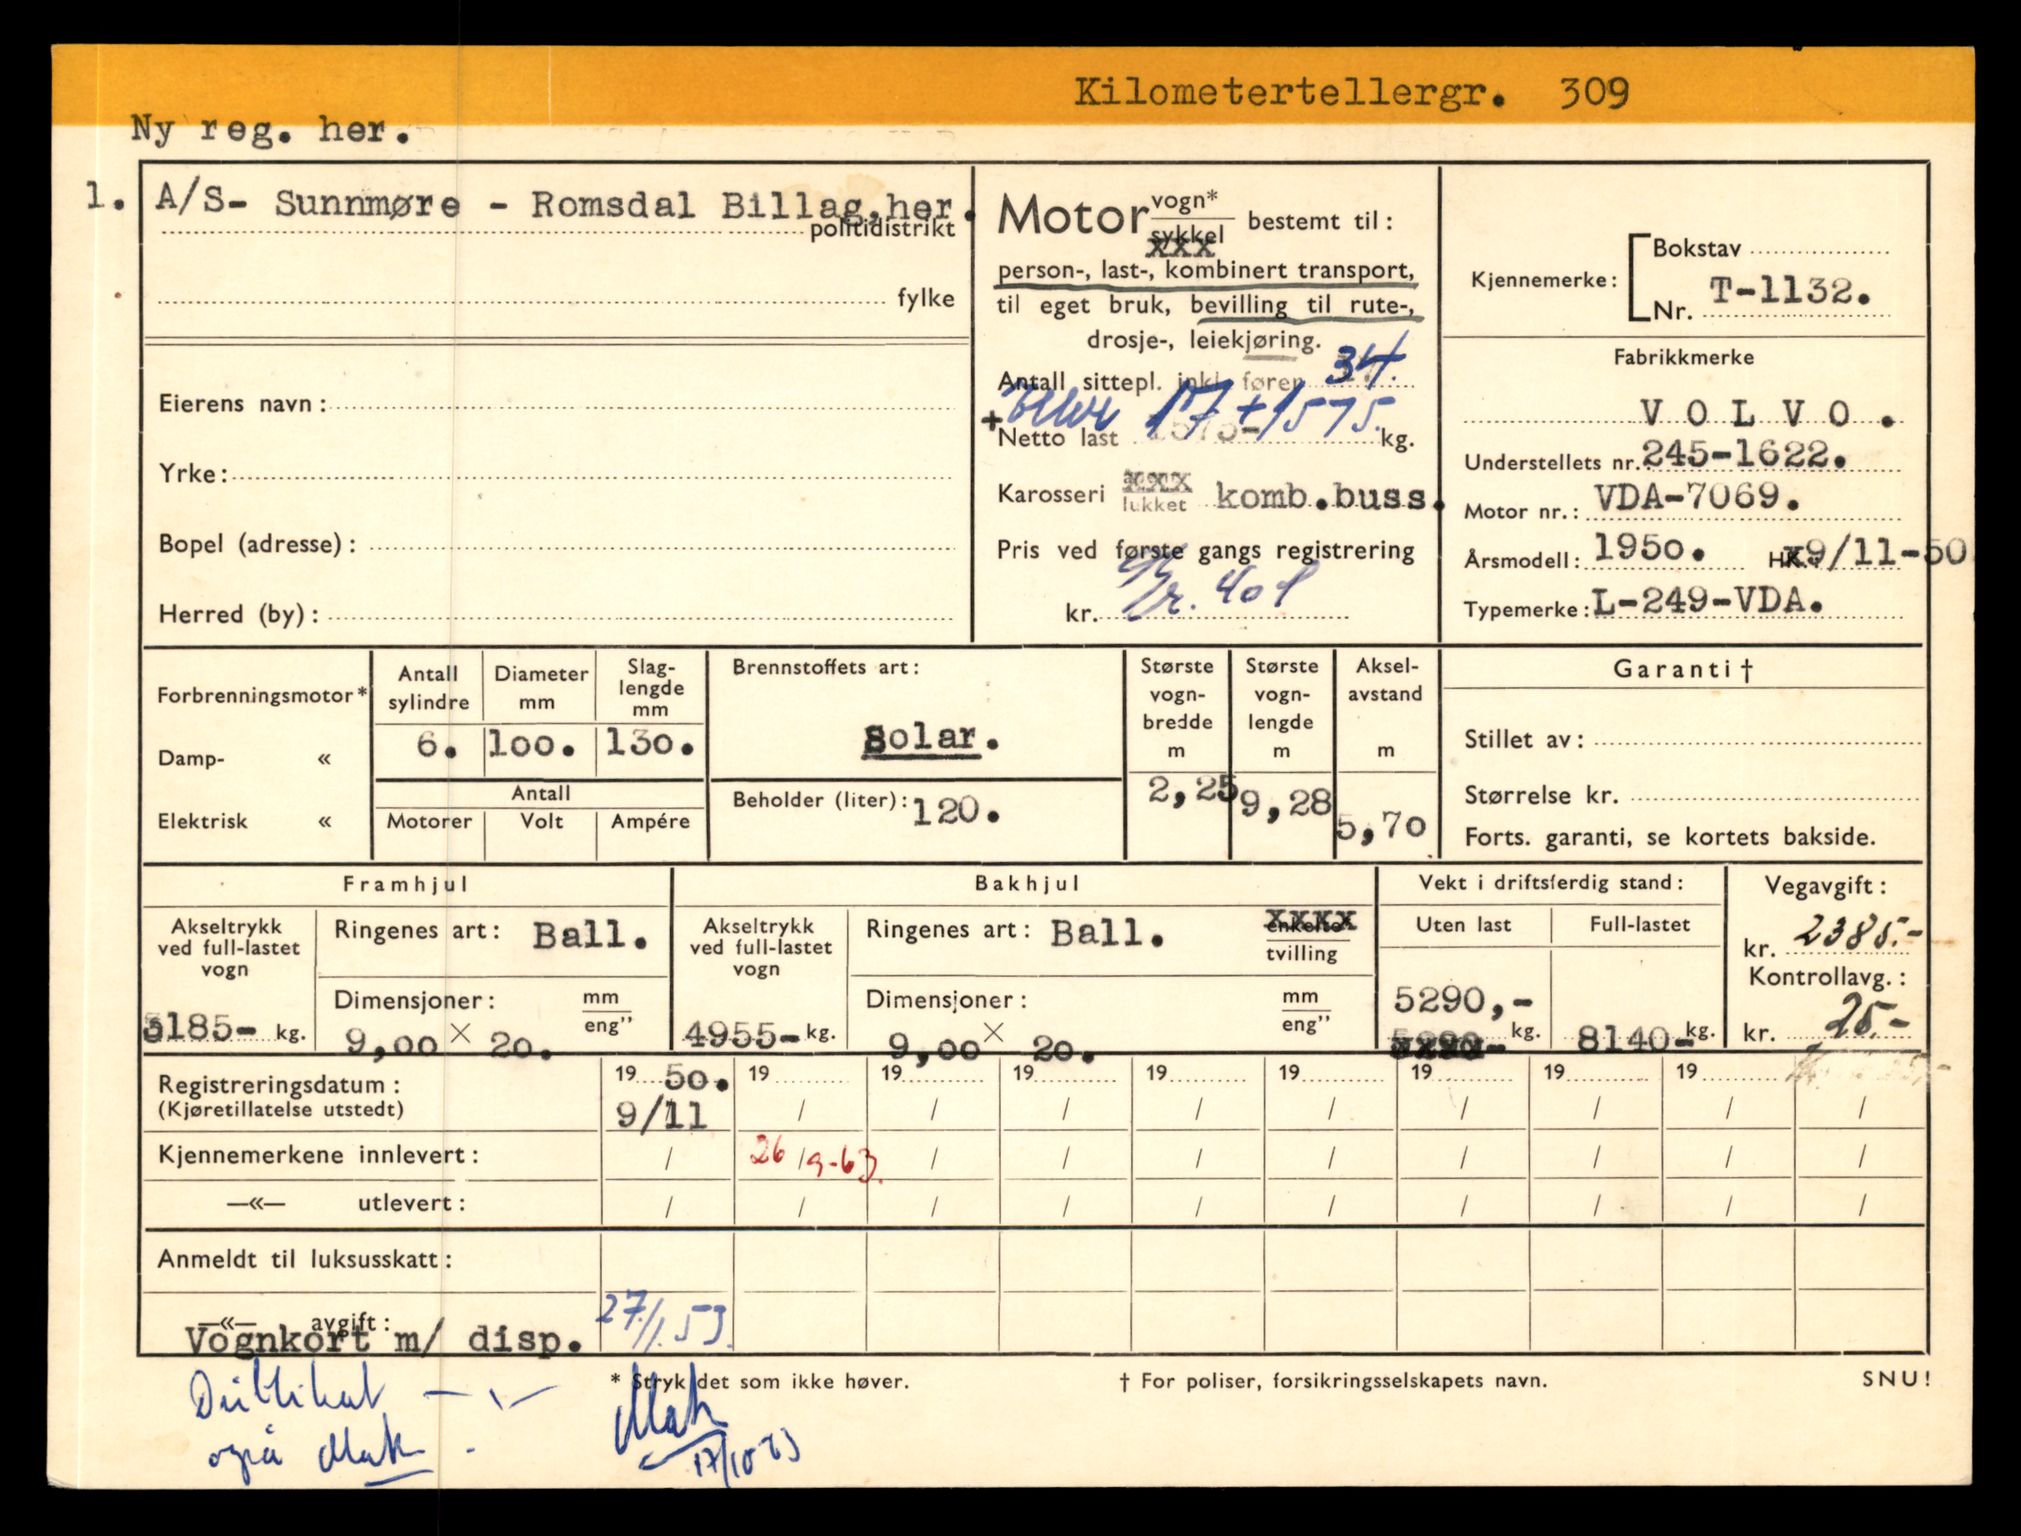 Kilometertellergr. 309
Ny reg. her.
1. A/S- Sunnmøre - Romsdal Billag, her.
politidistrikt
fylke
Eierens navn:
Yrke:
Bopel (adresse):
Herred (by):
Motor vogn* / sykkel bestemt til:
xxx
person-, last-, kombinert transport,
til eget bruk, bevilling til rute-,
drosje-, leiekjøring.
Antall sittepl. inkl. fører 34.
+ eller 17 + 1575.
Netto last 1575- kg.
Karosseri xxxx lukket komb.buss.
Pris ved første gangs registrering
kr.
Kjennemerke: Bokstav
Nr. T-1132.
Fabrikkmerke
VOLVO.
Understellets nr. 245-1622.
Motor nr.: VDA-7069.
Årsmodell: 1950. HK. x9/11-50
Typemerke: L-249-VDA.
Forbrenningsmotor*
Damp- «
Elektrisk «
Antall sylindre
6.
Diameter mm
100.
Slag-lengde mm
130.
Antall
Motorer Volt Ampére
Brennstoffets art:
Solar.
Beholder (liter): 120.
Største vogn-bredde m
2,25
Største vogn-lengde m
9,28
Aksel-avstand m
5,70
Garanti †
Stillet av:
Størrelse kr.
Forts. garanti, se kortets bakside.
Framhjul
Akseltrykk ved full-lastet vogn
3185- kg.
Ringenes art: Ball.
Dimensjoner: mm / eng"
9,00 × 20.
Bakhjul
Akseltrykk ved full-lastet vogn
4955- kg.
Ringenes art: Ball. xxxx enkelte / tvilling
Dimensjoner: mm / eng"
9,00 × 20.
Vekt i driftsferdig stand:
Uten last
5290,-
kg.
Full-lastet
8140- kg.
Vegavgift:
kr. 2385.-
Kontrollavg.:
kr. 25.-
Registreringsdatum: 19 50. 19 19 19 19 19 19 19 19
(Kjøretillatelse utstedt) 9/11 / / / / / / / / /
Kjennemerkene innlevert: / 26/9-63. / / / / / / / /
—«— utlevert: / / / / / / / / / /
Anmeldt til luksusskatt:
—«— avgift:
Vognkort m/ disp. 27/1.53.
* Stryk det som ikke høver.
† For poliser, forsikringsselskapets navn.
SNU!
også
17/10 53